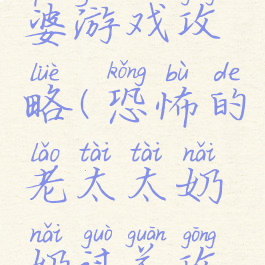 婆游戏攻
lüè kǒng bù de
略(恐怖的
lǎo tài tài nǎi
老太太奶
nǎi guò guān gōng
奶过关攻